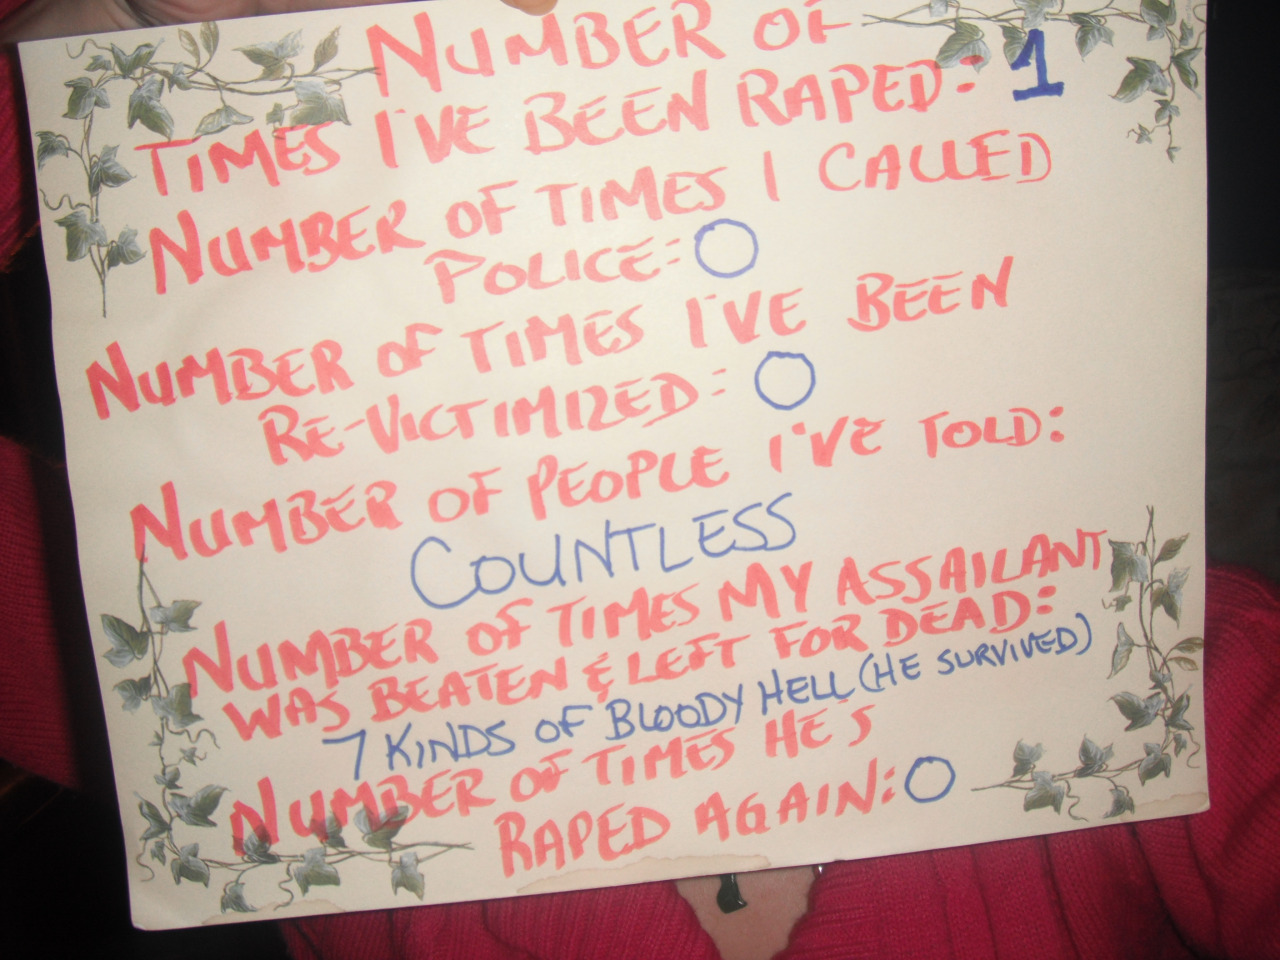 NUMBER OF
TIMES I'VE BEEN RAPED: 1
NUMBER OF TIMES I CALLED
POLICE: O
NUMBER OF TIMES I'VE BEEN
RE-VICTIMIZED: O
NUMBER OF PEOPLE I'VE TOLD:
COUNTLESS
NUMBER OF TIMES MY ASSAILANT
WAS BEATEN & LEFT FOR DEAD:
7 KINDS OF BLOODY HELL (HE SURVIVED)
NUMBER OF TIMES HE'S
RAPED AGAIN: O